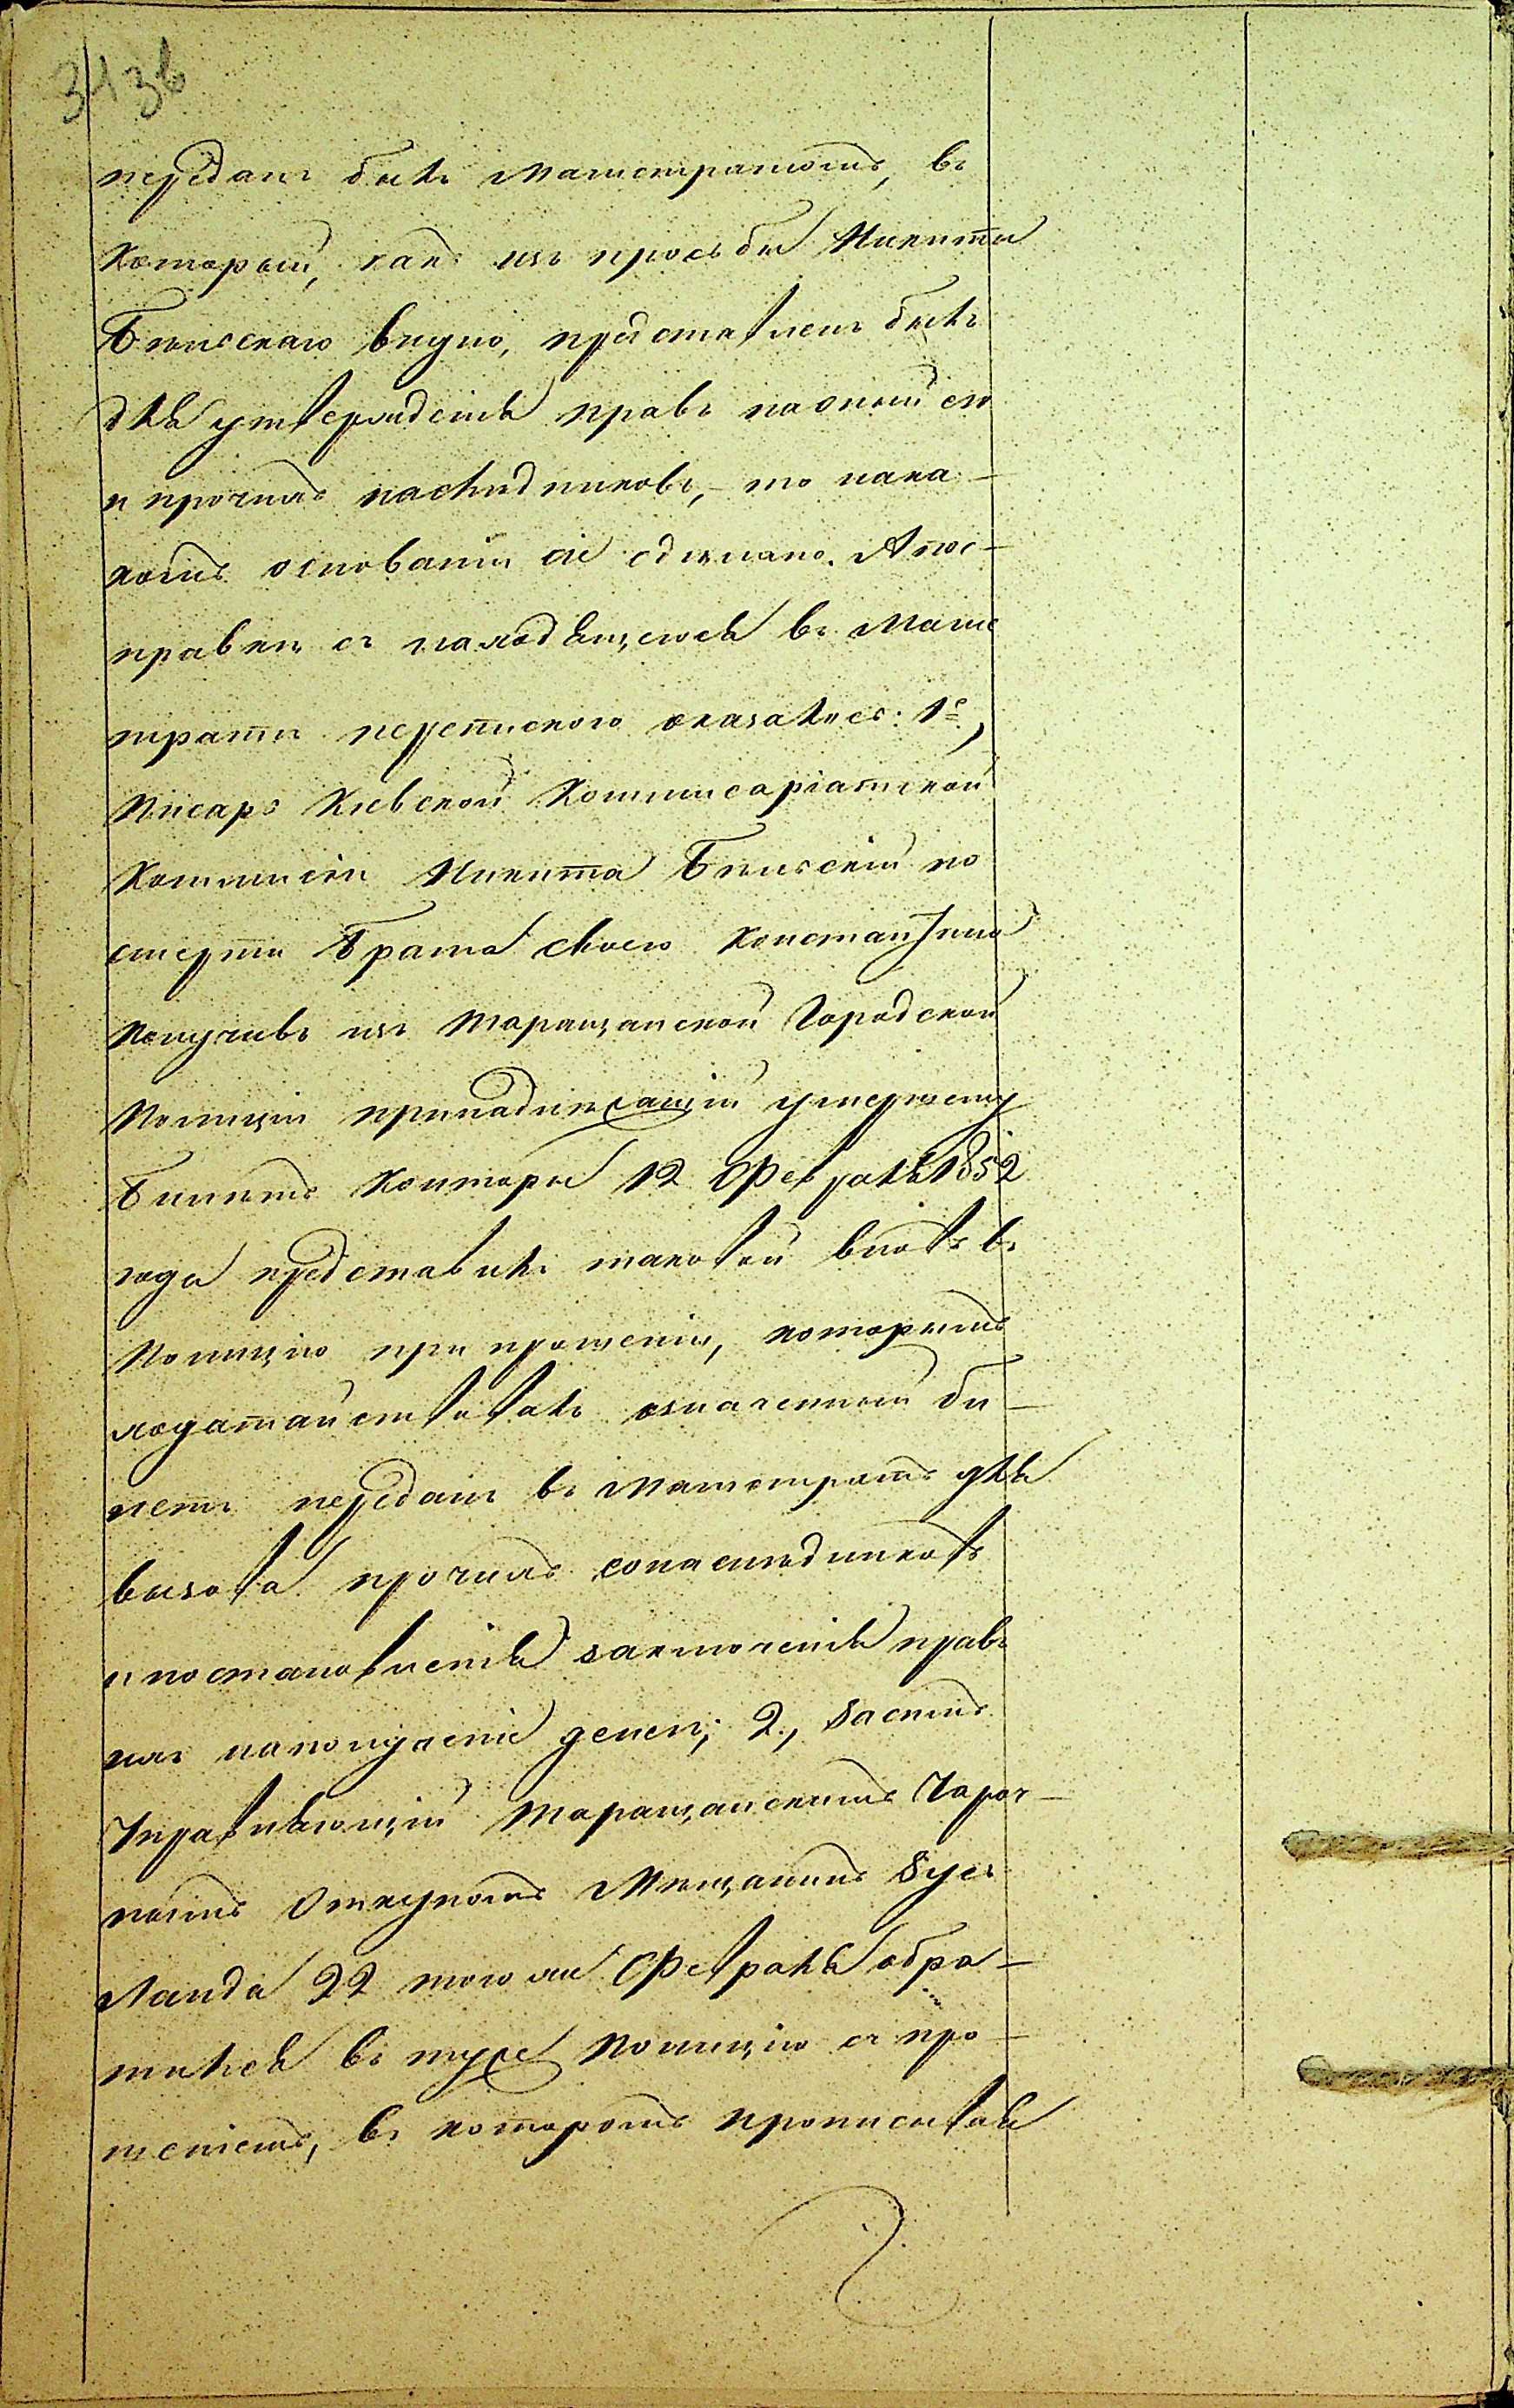 343б
переданъ былъ Магистратомъ, въ
который, какъ изъ просьбы Никиты
Бѣлискаго видно, представленъ былъ
для утвержденія правъ на оный его
и прочихъ наслѣдниковъ, – то на ка-
комъ основаніи сіе сдѣлано. А по с-
правкѣ съ находящегося въ Магис
тратѣ переписного оказалось: 1е,
Писарь Кіевской Коммисаріатской
Коммисіи Никита Бѣлискій по
смерти Брата своего Константина
Получивъ изъ Таращанской Городской
Полиціи принадлежащій умершему
Билетъ Конторы 12 Февраля 1852
года представилъ таковой вновь въ
Полицію при прошеніи, которымъ
ходатайствовалъ означенный би-
летъ переданъ въ Магистратъ для
вызова прочихъ сонаслѣдниковъ
и постановленія заключенія правъ
ихъ на полученіе денегъ; 2., За симъ
Управляющій Таращанскимъ Чароч-
нымъ Откупомъ Мѣщанинъ Зусь
Ланда 22 того же Февраля обра-
тился въ туже Полицію съ про-
шеніемъ, въ которомъ прописывая